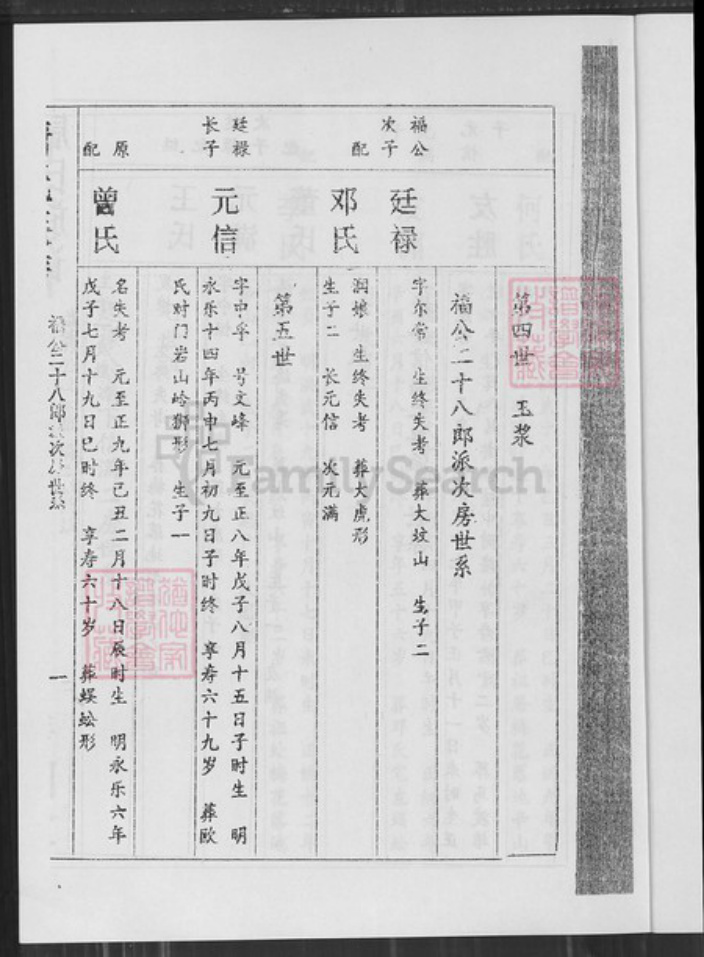 第四世 玉浆
福公二十八郎派次房世系
福公
次子
廷禄
字尔常 生终失考 葬大坟山 生子二
配
邓氏
润娘 生终失考 葬大虎形
生子二 长元信 次元满
第五世
廷禄
长子
元信
字中孚 号文峰 元至正八年戊子八月十五日子时生 明
永乐十四年丙申七月初九日子时终 享寿六十九岁 葬欧
氏对门岩山岭狮形 生子一
原
配
曾氏
名失考 元至正九年己丑二月十八日辰时生 明永乐六年
戊子七月十九日巳时终 享寿六十岁 葬蜈蚣形
福公二十八郎 次房世系
一
FamilySearch